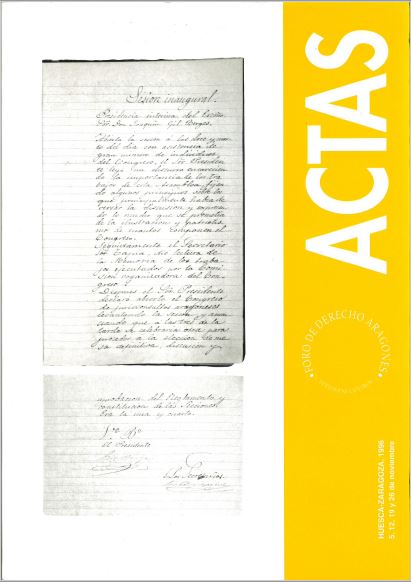 Sesion inaugural.
Presidencia interina del Excmo.
Sór. Don Joaquin Gil Berges.
Abierta la sesion á las doce y
to del dia con asistencia de
gran número de individuos
del Congreso, el Sór. Presiden
te leyó un discurso
de la importancia de los tra
bajos de esta Asamblea,
do algunos
que principalmente habia de
versar la discusion y
do lo mucho que se prometia
de la ilustracion y patriotis
mo de cuantos componen el
Congreso.
Seguidamente el Secretario
Sór. dio lectura de
la Memoria de los traba
jos ejecutados por la Comi
sion organizadora del Con
greso.
Despues el Sór. Presidente
declaró abierto el Congreso
de jurisconsultos aragoneses
levantando la sesion, y anun
ciando que á las tres de la
tarde se celebraria otra para
proceder á la eleccion de me
sa definitiva, discusion y
aprobacion del Reglamento y
constitucion de las Secciones
Era la una y cuarto.
Vº Bº
El Presidente
Los Secretarios
ACTAS
FORO DE DERECHO ARAGONÉS
HUESCA-ZARAGOZA, 1996
5, 12, 19 y 26 de noviembre